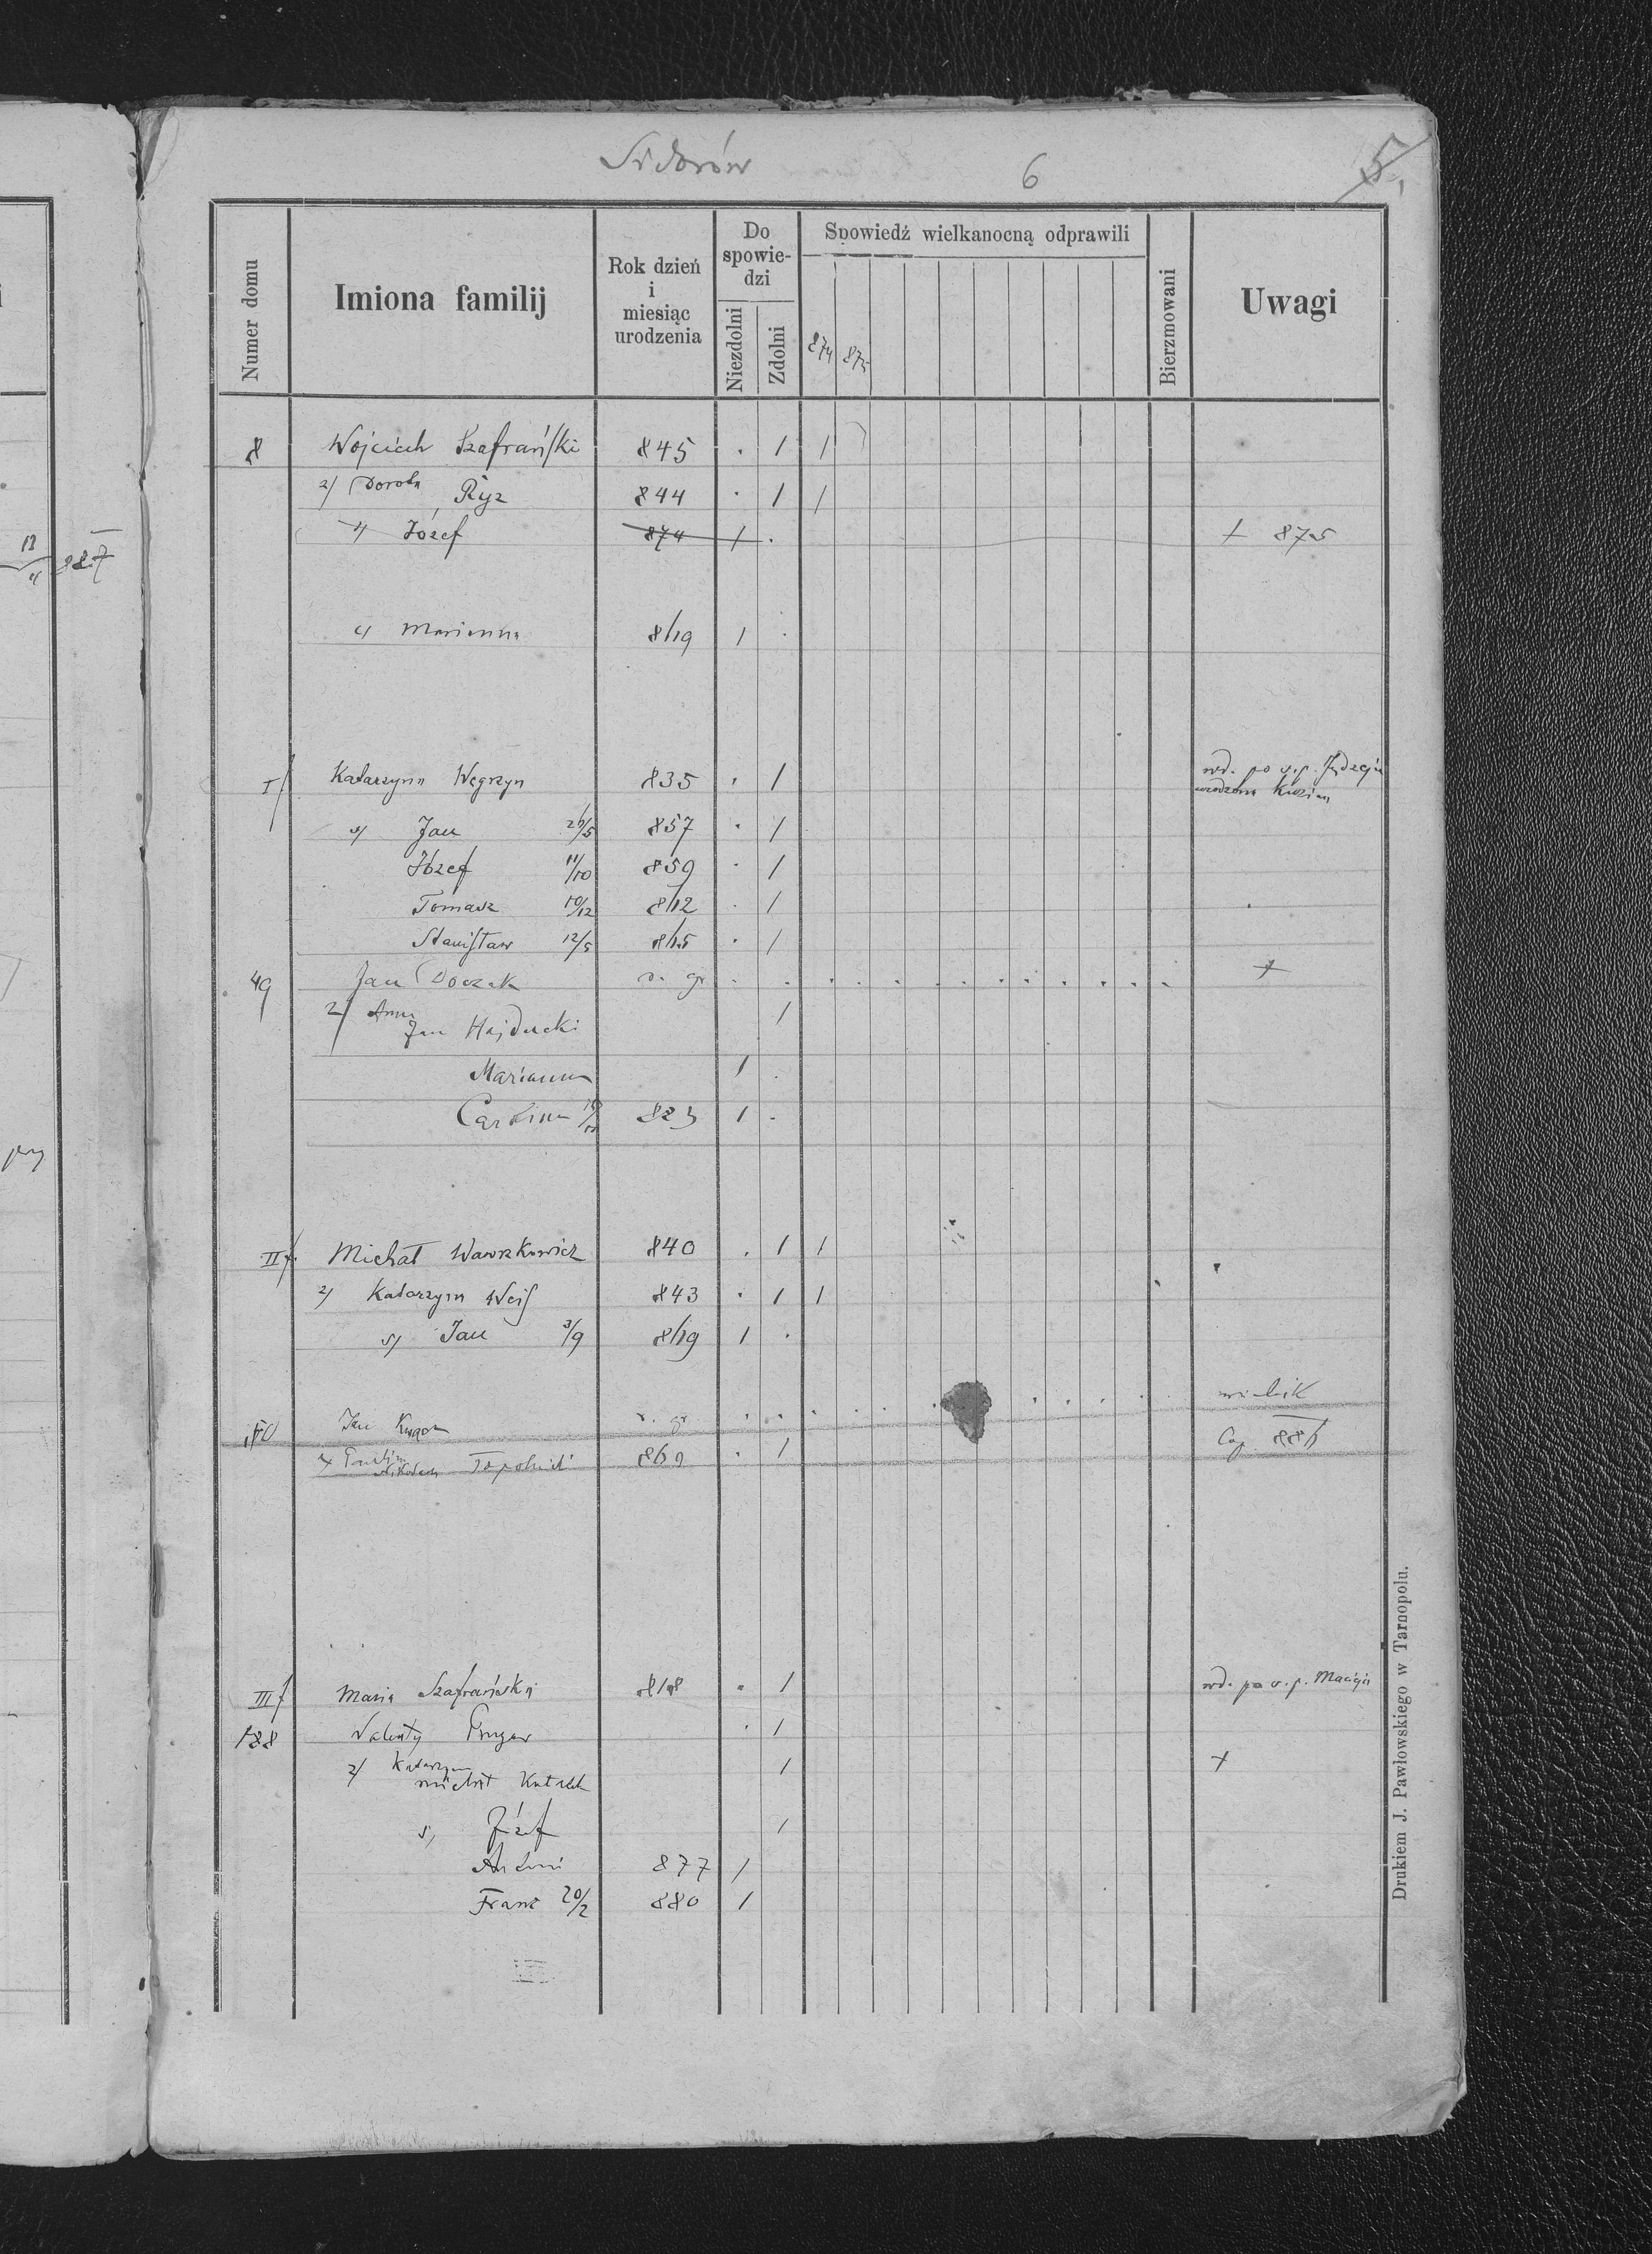 Sidorów 6 5.
Numer domu
Imiona familij
Rok dzień
i
miesiąc
urodzenia
Do
spowie-
dzi
Niezdolni
Zdolni
Spowiedź wielkanocną odprawili
874 875
Bierzmowani
Uwagi
8 Wojciech Szafrański 845 . 1 1
2/ Dorota Ryz 844 . 1 1
Józef 874 1 . + 875
Marianna 8/19 1 .
I/ Katarzyna Węgrzyn 835 . 1 wd. po ś.p. Jędzeju
urodzona
s/ Jan 857 . 1
Józef 11/10 859 . 1
Tomasz 10/12 8/12 . 1
Stanisław 12/5 8/15 . 1
49 Jan Doczak r. gr +
2/ Anna
Jan Hajducki 1
Marianna 1 .
Carolina 1 .
II/. Michał Wawrzkowicz 840 . 1 1
2/ Katarzyna 843 . 1 1
s/ Jan 3/9 8/19 1 .
Jan r. gr
Topolnicki 869 . 1
III/ Maria Szafrańska 818 . 1 wd. po ś.p. Macieju
188 Walenty . 1
2/ Katarzyna
michał 1 +
s, Józef 1
Antoni 877 1
Franc 20/2 880 1
Drukiem J. Pawłowskiego w Tarnopolu.
887